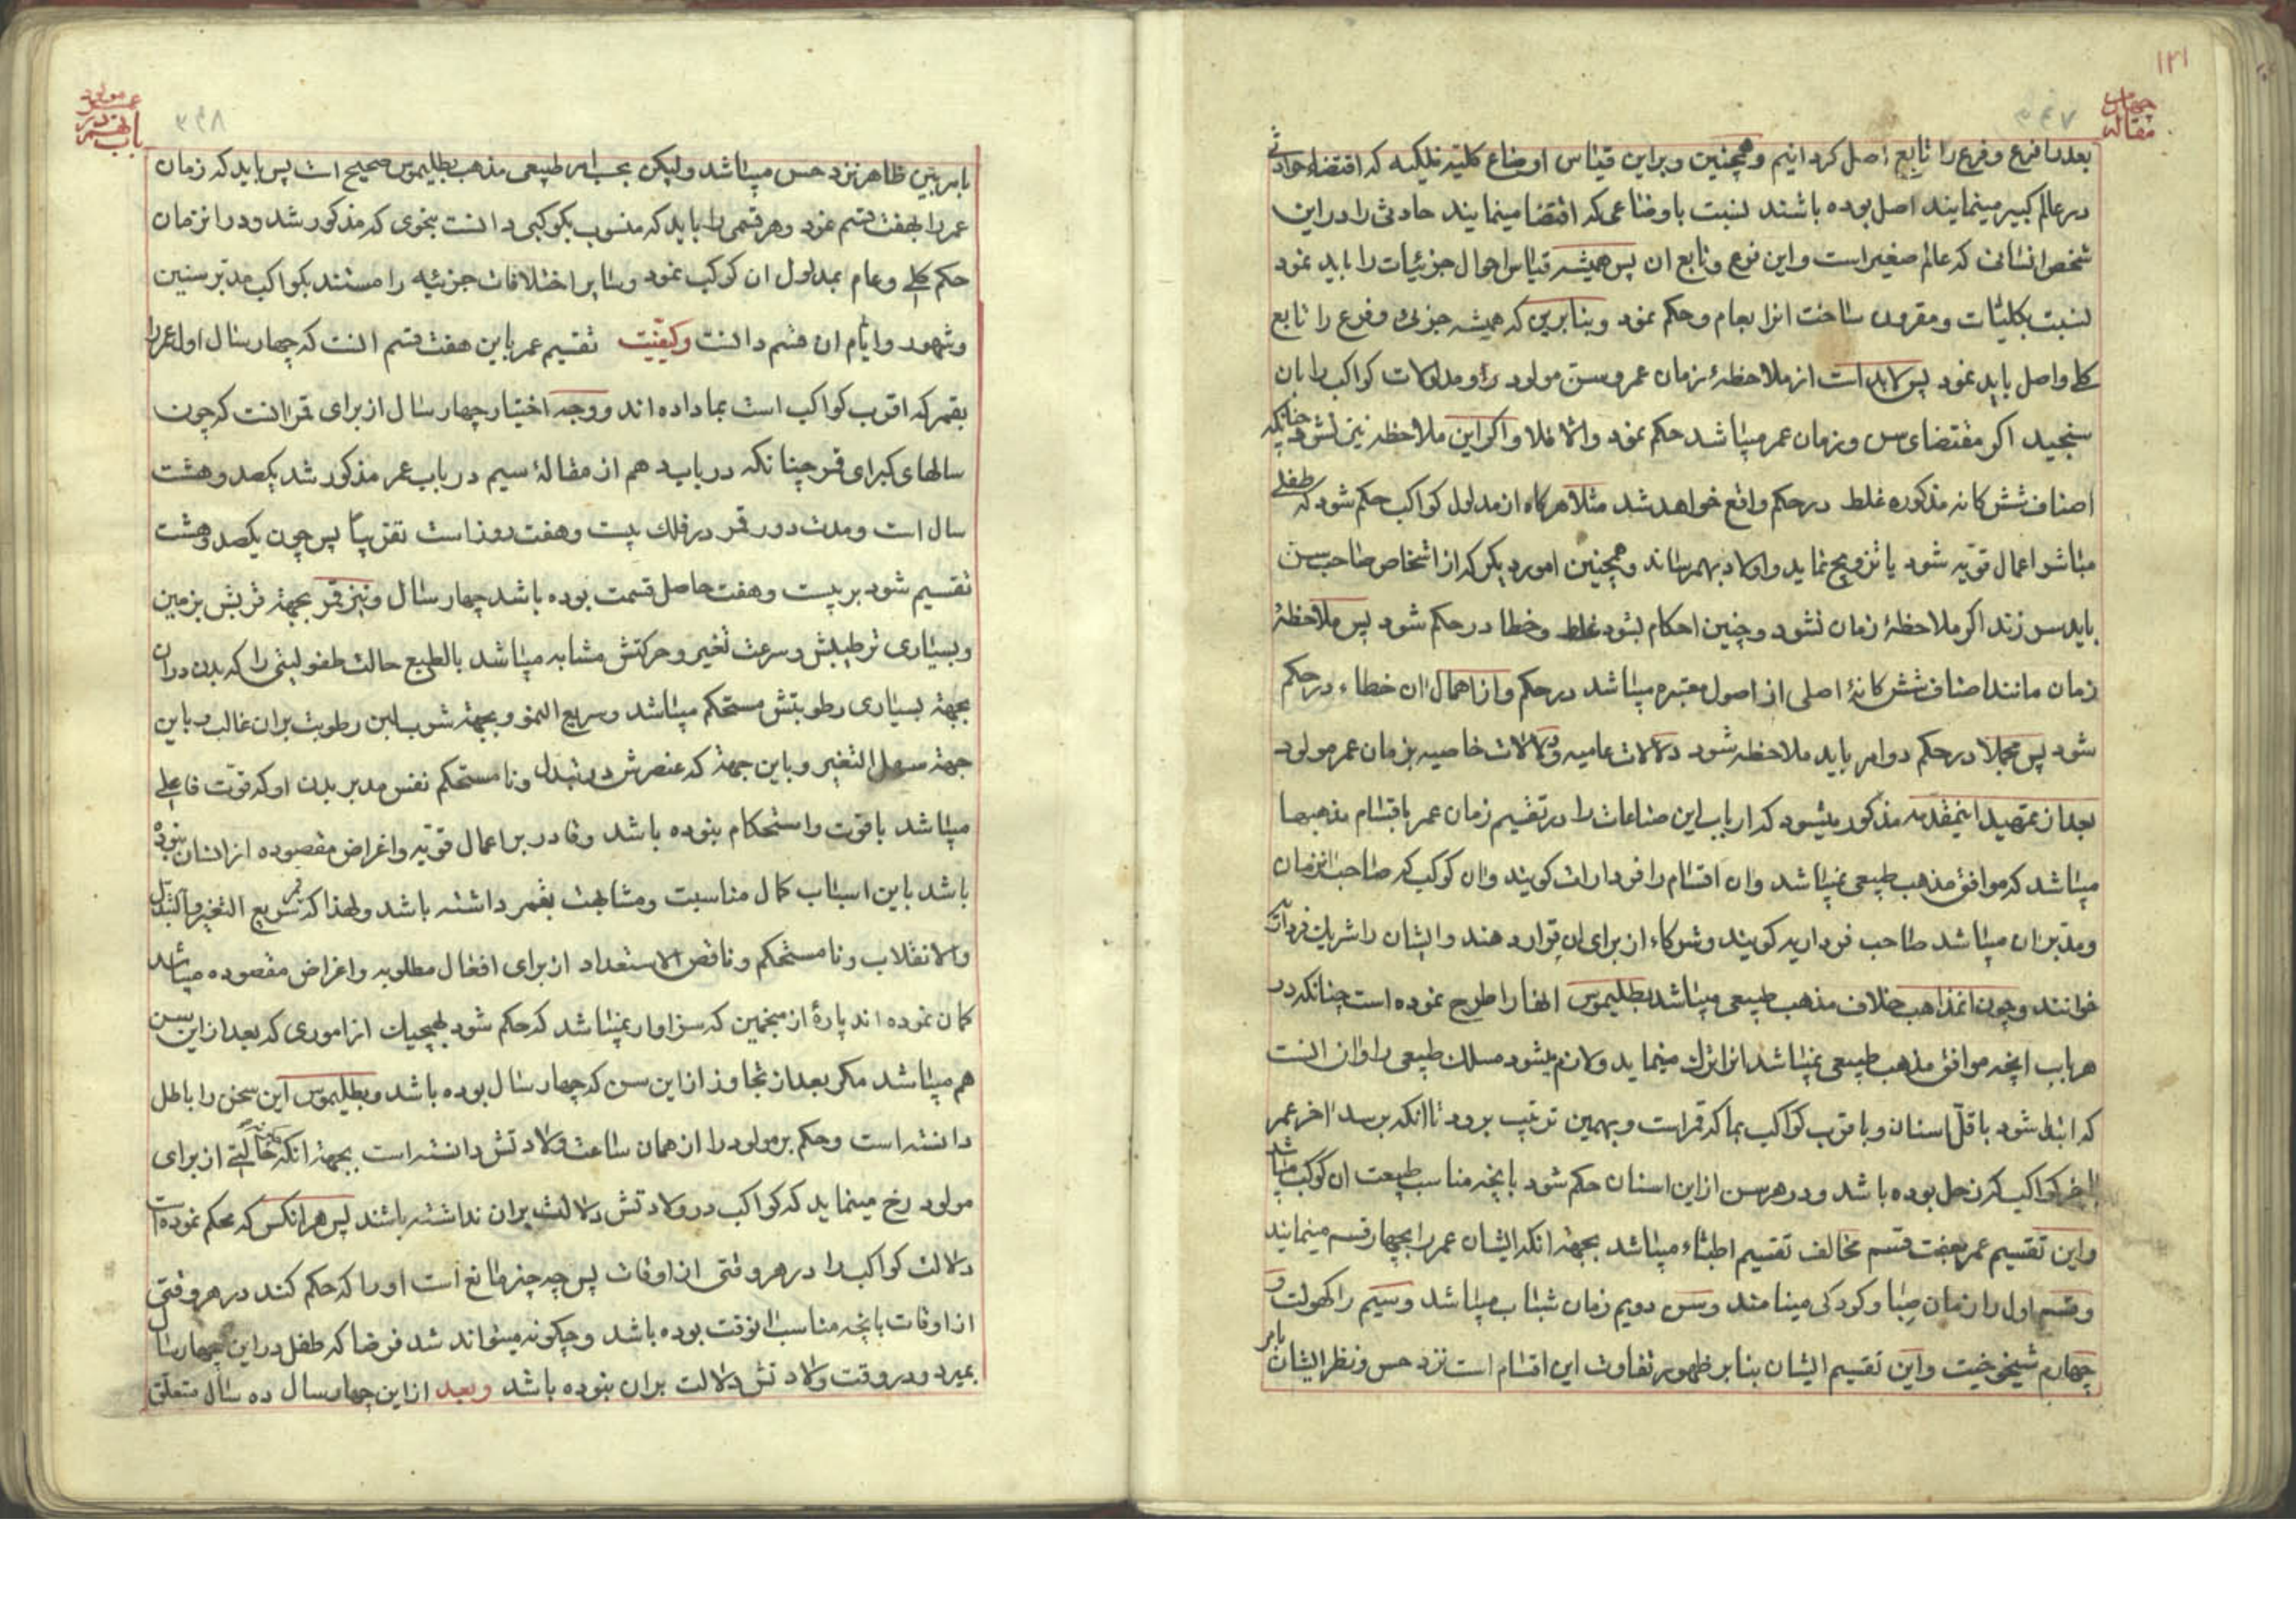 ۱۳۱
مقاله چهارم
۳۴۷
بعد را فرع و فرع را تابع اصل کردانیم و همچنین و براین قیاس اوضاع کلیه فلکیه که اقتضاء حوادثی
در عالم کبیر مینمایند اصل بوده باشند نسبت باوضاعی که اقتضا مینمایند حادثی را در این
شخص انسانی که عالم صغیر است و این فرع و تابع ان پس همیشه قیاس احوال جزئیات را باید نمود
نسبت بکلیات و مقرون ساخت انرا بعام و حکم نمود و بنابرین که همیشه جزئی و فرع را تابع
کلی و اصل باید نمود پس لابد است از ملاحظهٔ زمان عمر و سن مولود را و مدلولات کواکب را بان
سنجید اکر مقتضای سن و زمان عمر میباشد حکم نمود والا فلا و اکر این ملاحظه نیز نشود چنانکه
اصناف شش کانه مذکوره غلط در حکم واقع خواهد شد مثلا هرکاه از مدلول کواکب حکم شود که طفلی
مباشر اعمال قویه شود یا تزویج نماید و اولاد بهم رساند و همچنین امور دیکر که از اشخاص صاحب سن
باید سر زند اکر ملاحظهٔ زمان نشود و چنین احکام بشود غلط و خطا در حکم شود پس ملاحظهٔ
زمان مانند اصناف شش کانهٔ اصلی از اصول معتبره میباشد در حکم و از اهمال ان خطاء در حکم
شود پس مجملا در حکم دو امر باید ملاحظه شود دلالات عامیه و دلالات خاصیه بزمان عمر مولود
بعد از تمهید اینمقدمه مذکور میشود که ارباب این صناعات را در تقسیم زمان عمر باقسام مذهبها
میباشد که موافق مذهب طبیعی نمیباشد وان اقسام را فردارات کویند وان کوکب که صاحب انزمان
و مدبر ان میباشد صاحب فرداریه کویند و شرکاء از برای ان قرار دهند و ایشان را شریک فردارات
خوانند و چون انمذاهب خلاف مذهب طبیعی میباشد بطلیموس انها را طرح نموده است چنانکه در
هر باب انچه موافق مذهب طبیعی نمیباشد انرا ترک مینماید و لازم میشود مسلک طبیعی را وان انست
که ابتدا شود باقل اسنان و باقرب کواکب بما که قمر است و بهمین ترتیب برود تا انکه برسد اخر عمر
باخر کواکب که زحل بوده باشد و در هر سن از این اسنان حکم شود بانچه مناسب طبیعت ان کوکب میباشد
و این تقسیم عمر بهفت قسم مخالف تقسیم اطباء میباشد بجهة انکه ایشان عمر را بچهار قسم مینمایند
و قسم اول را زمان صبا و کودکی مینامند و سن دویم زمان شباب میباشد و سیم را کهولت و
چهارم شیخوخیت و این تقسیم ایشان بنابر ظهور تفاوت این اقسام است نزد حس و نظر ایشان بامر
باب نهم در عمر مولود
۳۴۸
بامر بین ظاهر نزد حس میباشد ولیکن بحسب امر طبیعی مذهب بطلیموس صحیح است پس باید که زمان
عمر را بهفت قسم نمود و هر قسمی را باید که منسوب بکوکبی دانست بنحوی که مذکور شد و در انزمان
حکم کلی و عام بمدلول ان کوکب نمود و سایر اختلافات جزئیه را مستند بکواکب مدبر سنین
و شهور و ایام ان قسم دانست وکیفیت تقسیم عمر باین هفت قسم انست که چهار سال اول عمر را
بقمر که اقرب کواکب است بما داده اند و وجه اختیار چهار سال از برای قمر انست که چون
سالهای کبرای قمر چنانکه در باب دهم از مقالهٔ سیم در باب عمر مذکور شد یکصد و هشت
سال است و مدت دور قمر در فلک بیست و هفت روز است تقریبا پس چون یکصد و هشت
تقسیم شود بر بیست و هفت حاصل قسمت بوده باشد چهار سال و نیز قمر بجهة قربش بزمین
و بسیاری ترطیبش و سرعت تغیر و حرکتش مشابه میباشد بالطبیع حالت طفولیتی را که بدن در ان
بجهة بسیاری رطوبتش مستحکم میباشد و سریع النمو و بجهة شرب لبن رطوبت بران غالب و باین
جهة سهل التغیر و باین جهة که عنصرش در تبدل و نا مستحکم نفس مدبر بدن او که قوت فاعلی
میباشد با قوت و استحکام نبوده باشد و قادر بر اعمال قویه و اغراض مقصوده از انسان نبوده
باشد باین اسباب کمال مناسبت و مشابهت بقمر داشته باشد ولهذا که قمر سریع التغیر والتبدل
والانقلاب و نا مستحکم و ناقص الاستعداد از برای افعال مطلوبه و اغراض مقصوده میباشد
کمان نموده اند پارهٔ از منجمین که سزاوار نمیباشد که حکم شود بهیچیک از اموری که بعد از این سن
هم میباشد مکر بعد از تجاوز از این سن که چهار سال بوده باشد و بطلیموس این سخن را باطل
دانسته است و حکم بر مولود را از همان ساعت ولادتش دانسته است بجهة انکه حالتی از برای
مولود رخ مینماید که کواکب در ولادتش دلالت بران نداشته باشند پس هر انکس که محکم نموده است
دلالت کواکب را در هر وقتی از اوقات پس چه چیز مانع است او را که حکم کند در هر وقتی
از اوقات بانچه مناسب انوقت بوده باشد و چکونه میتواند شد فرضا که طفل در این چهار سال
بمیرد و در وقت ولادتش دلالت بران نبوده باشد وبعد از این چهار سال ده سال متعلق